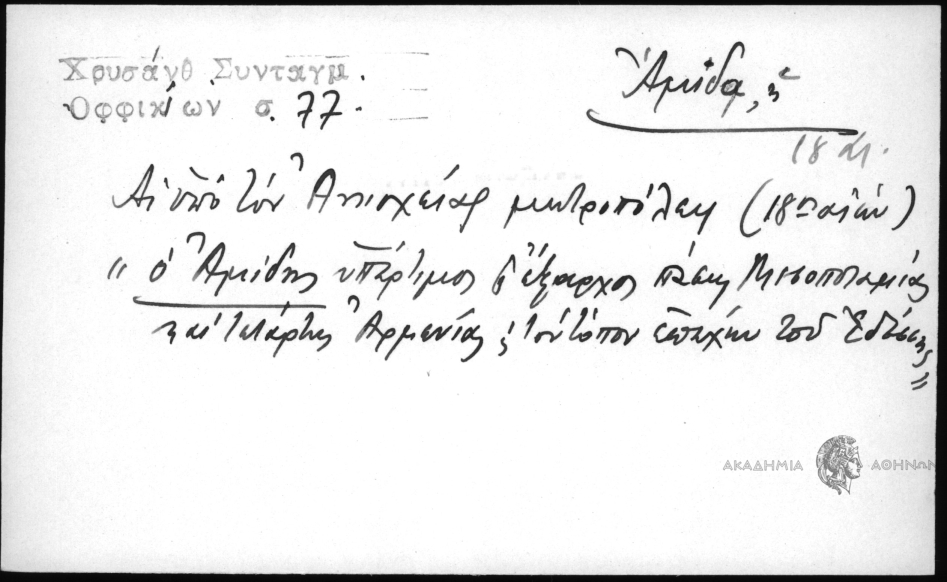 Χρυσάνθ Συνταγμ.
Οφφικίων σ. 77.
Ἄμιδα, ἡ
18 αἰ.
Αἱ ὑπὸ τὸν Ἀντιοχείας μητροπόλεις (18ος αἰών)
" ὁ Ἀμίδης ὑπέρτιμος ϗ ἔξαρχος πάσης Μεσοποταμίας
καὶ τετάρτης Ἀρμενίας ϗ τὸν τόπον ἐπέχων τοῦ Ἐδέσσης"
ΑΚΑΔΗΜΙΑ ΑΘΗΝΩΝ